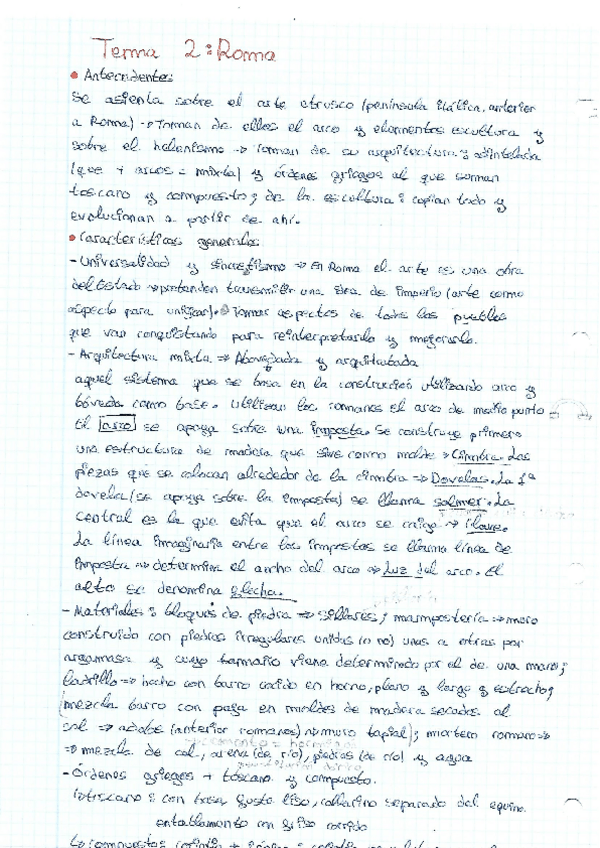 Tema 2: Roma
• Antecedentes
Se asienta sobre el arte etrusco (península itálica, anterior
a Roma) → Toman de ellos el arco y elementos escultura y
sobre el helenismo → Toman de su arquitectura adintelada
(que + arcos = mixta) y órdenes griegos al que suman
toscano y compuesto; de la escultura: copian todo y
evolucionan a partir de ahí.
• Características generales
- Universalidad y sincretismo ⇒ En Roma el arte es una obra
del Estado → pretenden transmitir una idea de imperio (arte como
aspecto para unificar). Tomar aspectos de todos los pueblos
que van conquistando para reinterpretarlo y mejorarlo.
- Arquitectura mixta ⇒ Abovedada y arquitrabada
aquel sistema que se basa en la construcción utilizando arco y
bóveda como base. Utilizan los romanos el arco de medio punto
El arco se apoya sobre una imposta. Se construye primero
una estructura de madera que sive como molde → Cimbra. Las
piezas que se colocan alrededor de la cimbra ⇒ Dovelas. La 1ª
dovela (se apoya sobre la imposta) se llama salmer. La
central es la que evita que el arco se caiga → clave.
La línea imaginaria entre las impostas se llama línea de
imposta → determina el ancho del arco ⇒ Luz del arco. El
alto se denomina flecha.
- Materiales: bloques de piedra ⇒ sillares; mampostería ⇒ muro
construido con piedras irregulares unidas (o no) unas a otras por
argamasa y cuyo tamaño viene determinado por el de una mano;
ladrillo ⇒ hecho con barro cocido en horno, plano y largo y estrecho;
(mezcla barro con paja en moldes de madera secados al
sol ⇒ adobe (anterior romanos) ⇒ muro tapial); mortero romano ⇒
⇒ mezcla de cal, arena (de río), piedras (de río) y agua
- Órdenes griegos + toscano y compuesto.
toscano: con basa, fuste liso, collarino separado del equino.
entablamento con friso corrido